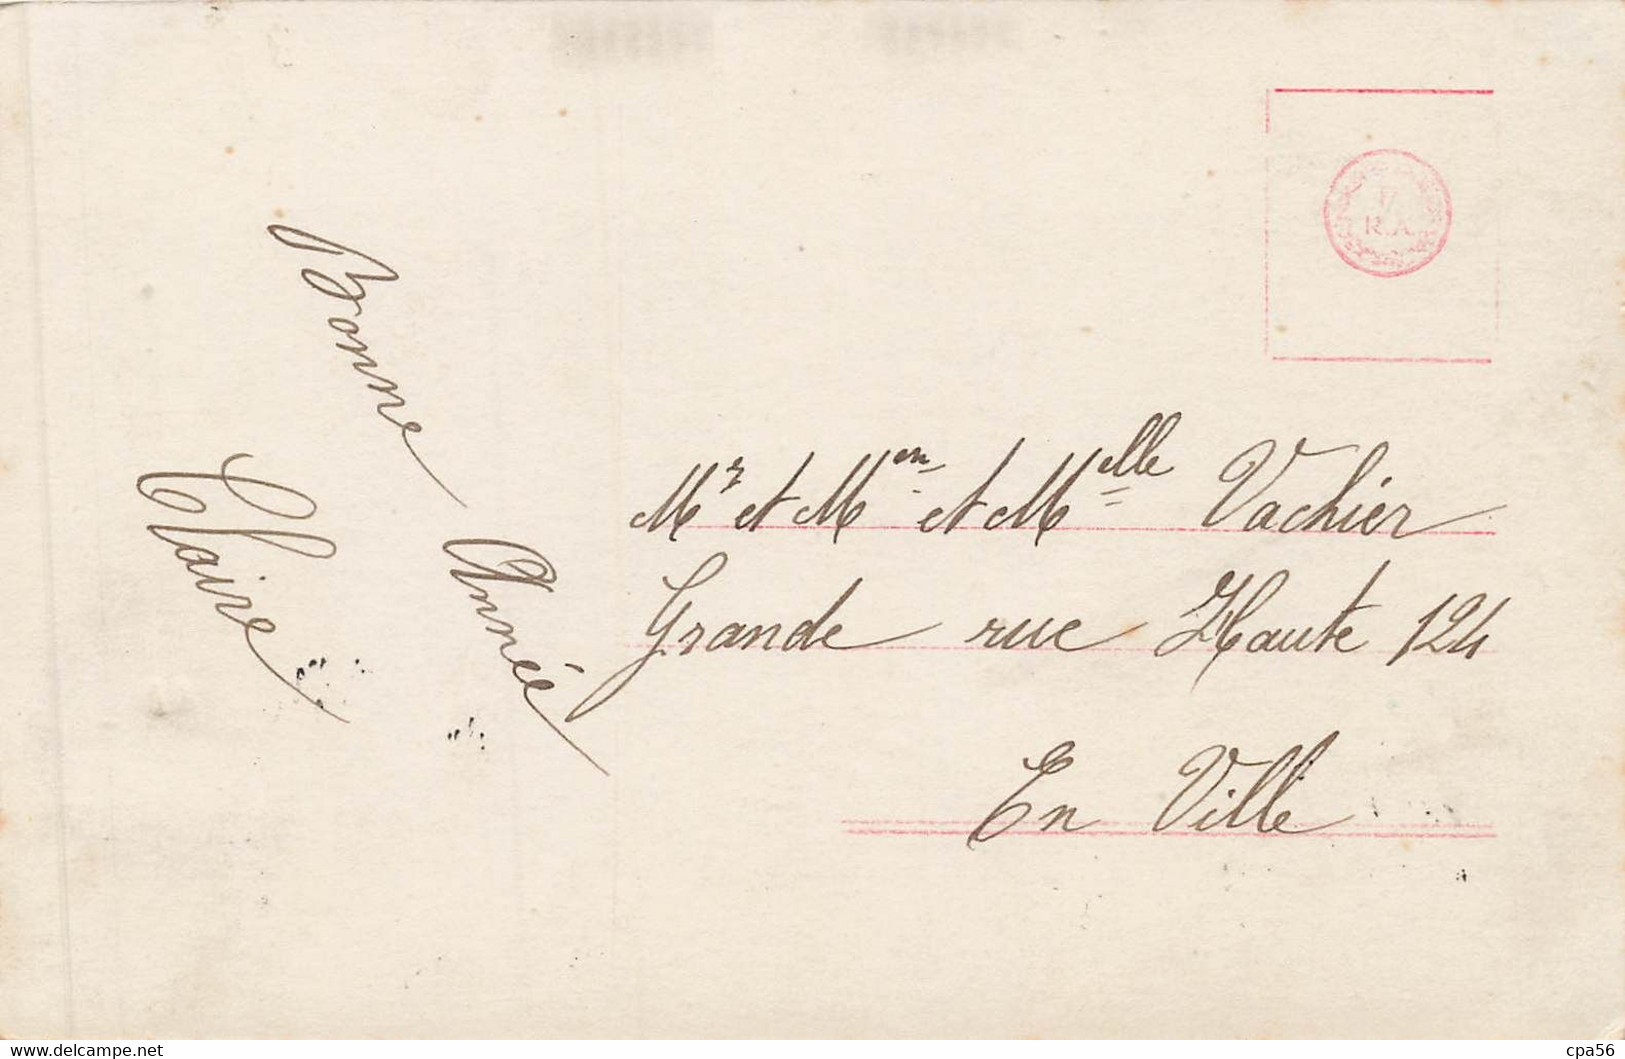 Bonne Année
Claire
Mr et Mme et Melle Vachier
Grande rue Haute 124
En Ville
R.A.
www.delcampe.net
cpa56